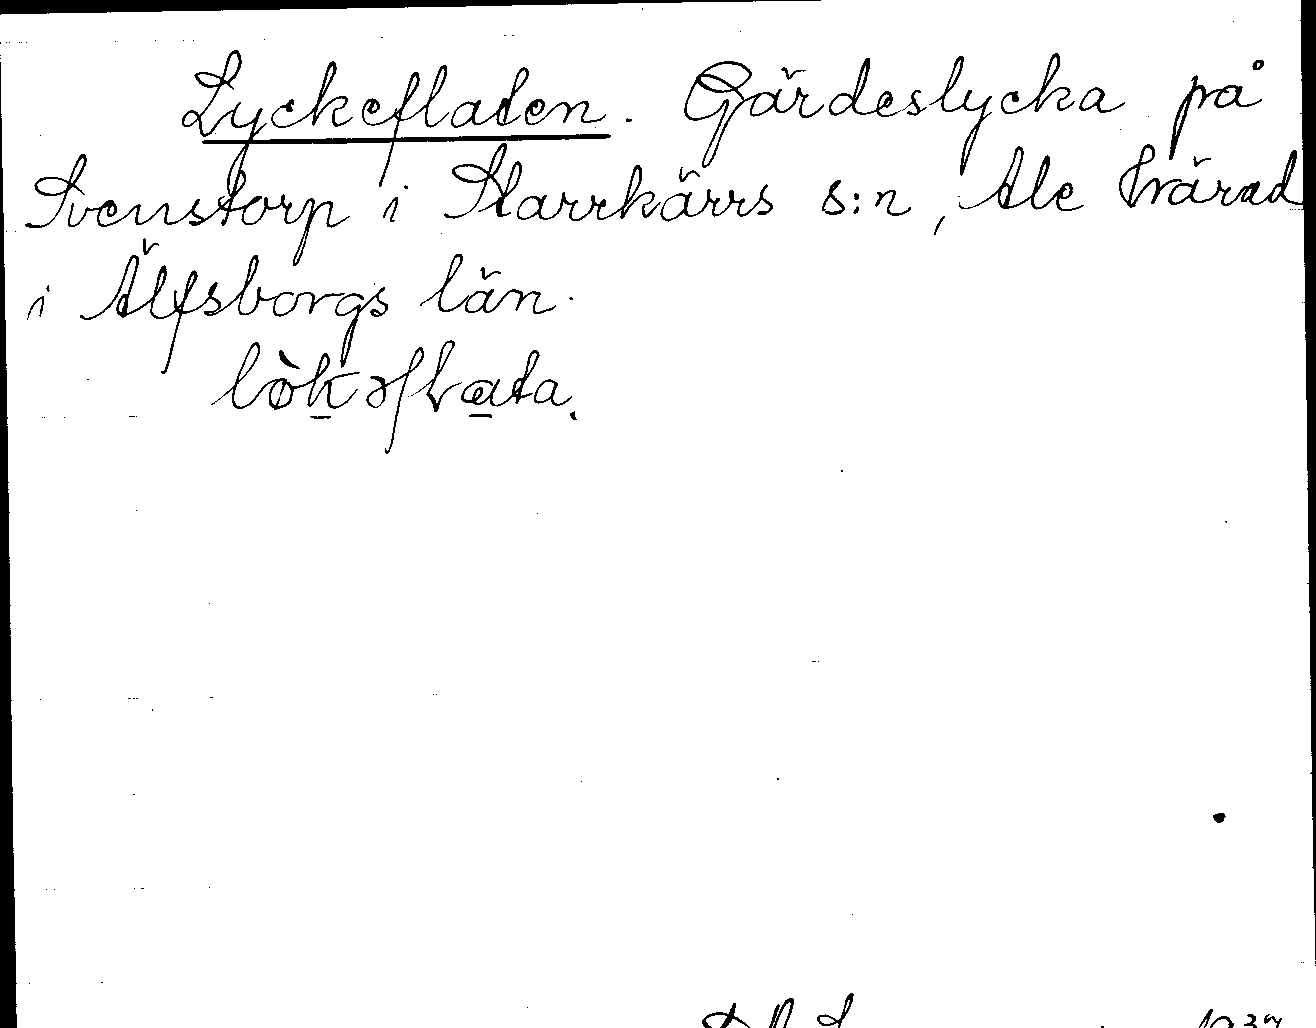 Lyckefladen. Gärdeslycka på
Svenstorp i Starrkärrs s:n, Ale Härad
i Älfsborgs län.
lø̀kəfɫata.